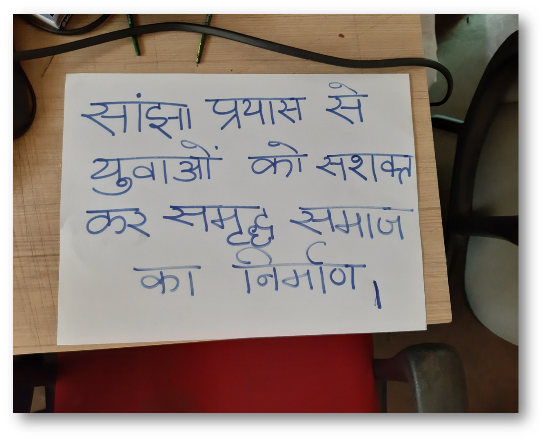 सांझा प्रयास से
युवाओं को सशक्त
कर समृद्ध समाज
का निर्माण।